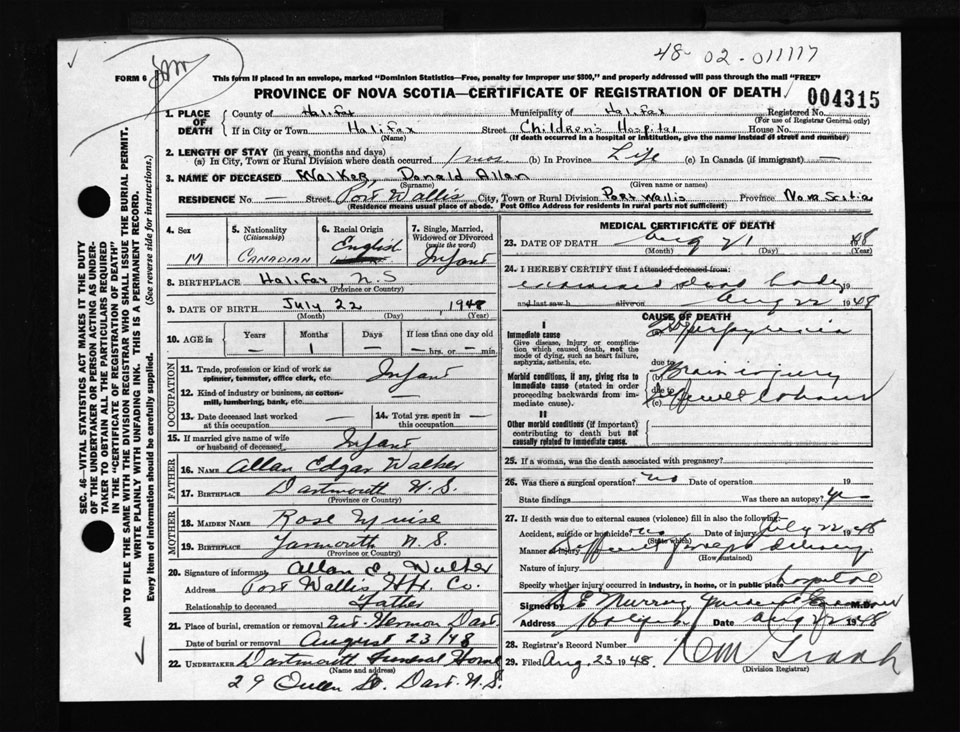 48-02-011117
FORM 6
This form if placed in an envelope, marked "Dominion Statistics—Free, penalty for improper use $300," and properly addressed will pass through the mail "FREE"
PROVINCE OF NOVA SCOTIA—CERTIFICATE OF REGISTRATION OF DEATH
004315
1. PLACE OF DEATH County of Halifax Municipality of Halifax Registered No.
(For use of Registrar General only)
If in City or Town Halifax Street Children's Hospital House No.
(Name) (If death occurred in a hospital or institution, give the name instead of street and number)
2. LENGTH OF STAY (in years, months and days)
(a) In City, Town or Rural Division where death occurred 1 mos. (b) In Province Life (c) In Canada (if immigrant) —
3. NAME OF DECEASED Walker, Donald Allan
(Surname) (Given name or names)
RESIDENCE No. — Street Port Wallis City, Town or Rural Division Port Wallis Province Nova Scotia
(Residence means usual place of abode. Post Office Address for residents in rural parts not sufficient)
4. Sex M
5. Nationality (Citizenship) CANADIAN
6. Racial Origin English
7. Single, Married, Widowed or Divorced (write the word) Infant
8. BIRTHPLACE Halifax N.S
(Province or Country)
9. DATE OF BIRTH July 22 1948
(Month) (Day) (Year)
10. AGE in Years Months Days If less than one day old
— 1 — — hrs. or — min.
OCCUPATION
11. Trade, profession or kind of work as spinner, teamster, office clerk, etc. Infant
12. Kind of industry or business, as cotton-mill, lumbering, bank, etc. —
13. Date deceased last worked at this occupation —
14. Total yrs. spent in this occupation —
15. If married give name of wife or husband of deceased Infant
FATHER
16. NAME Allan Edgar Walker
17. BIRTHPLACE Dartmouth N.S.
(Province or Country)
MOTHER
18. MAIDEN NAME Rose Muise
19. BIRTHPLACE Yarmouth N.S.
(Province or Country)
20. Signature of informant Allan E. Walker
Address Port Wallis Hfx. Co.
Relationship to deceased Father
21. Place of burial, cremation or removal Mt. Hermon Dart.
Date of burial or removal August 23/48
22. UNDERTAKER Dartmouth Funeral Home
(Name and address)
29 Queen St. Dart. N.S.
MEDICAL CERTIFICATE OF DEATH
23. DATE OF DEATH Aug 21 48
(Month) (Day) (Year)
24. I HEREBY CERTIFY that I attended deceased from:
examined dead body 19
and last saw h alive on Aug 22 1948
CAUSE OF DEATH
I
Immediate cause
Give disease, injury or complication which caused death, not the mode of dying, such as heart failure, asphyxia, asthenia, etc.
(a) Hyperpyrexia
due to
Morbid conditions, if any, giving rise to immediate cause (stated in order proceeding backwards from immediate cause).
(b) Brain injury
due to
(c)
II
Other morbid conditions (if important) contributing to death but not causally related to immediate cause.
25. If a woman, was the death associated with pregnancy?
26. Was there a surgical operation? no Date of operation 19
State findings Was there an autopsy?
27. If death was due to external causes (violence) fill in also the following:—
Accident, suicide or homicide no Date of injury July 22 1948
(State which)
Manner of injury Difficult forceps delivery
(How sustained)
Nature of injury
Specify whether injury occurred in industry, in home, or in public place hospital
Signed by Murray M.D.
Address Halifax Date Aug 22 1948
28. Registrar's Record Number
29. Filed Aug. 23 1948.
(Division Registrar)
SEC. 46—VITAL STATISTICS ACT MAKES IT THE DUTY
OF THE UNDERTAKER OR PERSON ACTING AS UNDER-
TAKER TO OBTAIN ALL THE PARTICULARS REQUIRED
IN THE "CERTIFICATE OF REGISTRATION OF DEATH"
AND TO FILE THE SAME WITH THE DIVISION REGISTRAR WHO SHALL ISSUE THE BURIAL PERMIT.
WRITE PLAINLY WITH UNFADING INK. THIS IS A PERMANENT RECORD.
Every item of information should be carefully supplied. (See reverse side for instructions.)